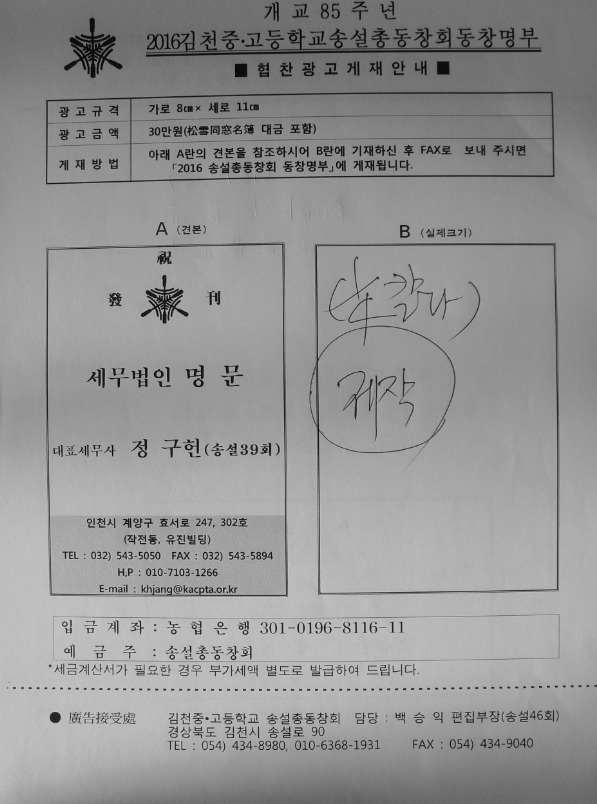 개교 85주년
2016김천중·고등학교송설총동창회동창명부
■ 협찬광고게재안내 ■
광고규격 가로 8㎝× 세로 11㎝
광고금액 30만원(松雪同窓名簿 대금 포함)
게재방법 아래 A란의 견본을 참조하시어 B란에 기재하신 후 FAX로 보내 주시면
「2016 송설총동창회 동창명부」에 게재됩니다.
A (견본)
祝
發 刊
세무법인 명 문
대표세무사 정 구헌(송설39회)
인천시 계양구 효서로 247, 302호
(작전동, 유진빌딩)
TEL : 032) 543-5050 FAX : 032) 543-5894
H,P : 010-7103-1266
E-mail : khjang@kacpta.or.kr
B (실제크기)
칼라)
제작
입금계좌 : 농협은행 301-0196-8116-11
예 금 주 : 송설총동창회
*세금계산서가 필요한 경우 부가세액 별도로 발급하여 드립니다.
● 廣告接受處 김천중·고등학교 송설총동창회 담당 : 백 승 익 편집부장(송설46회)
경상북도 김천시 송설로 90
TEL : 054) 434-8980, 010-6368-1931 FAX : 054) 434-9040